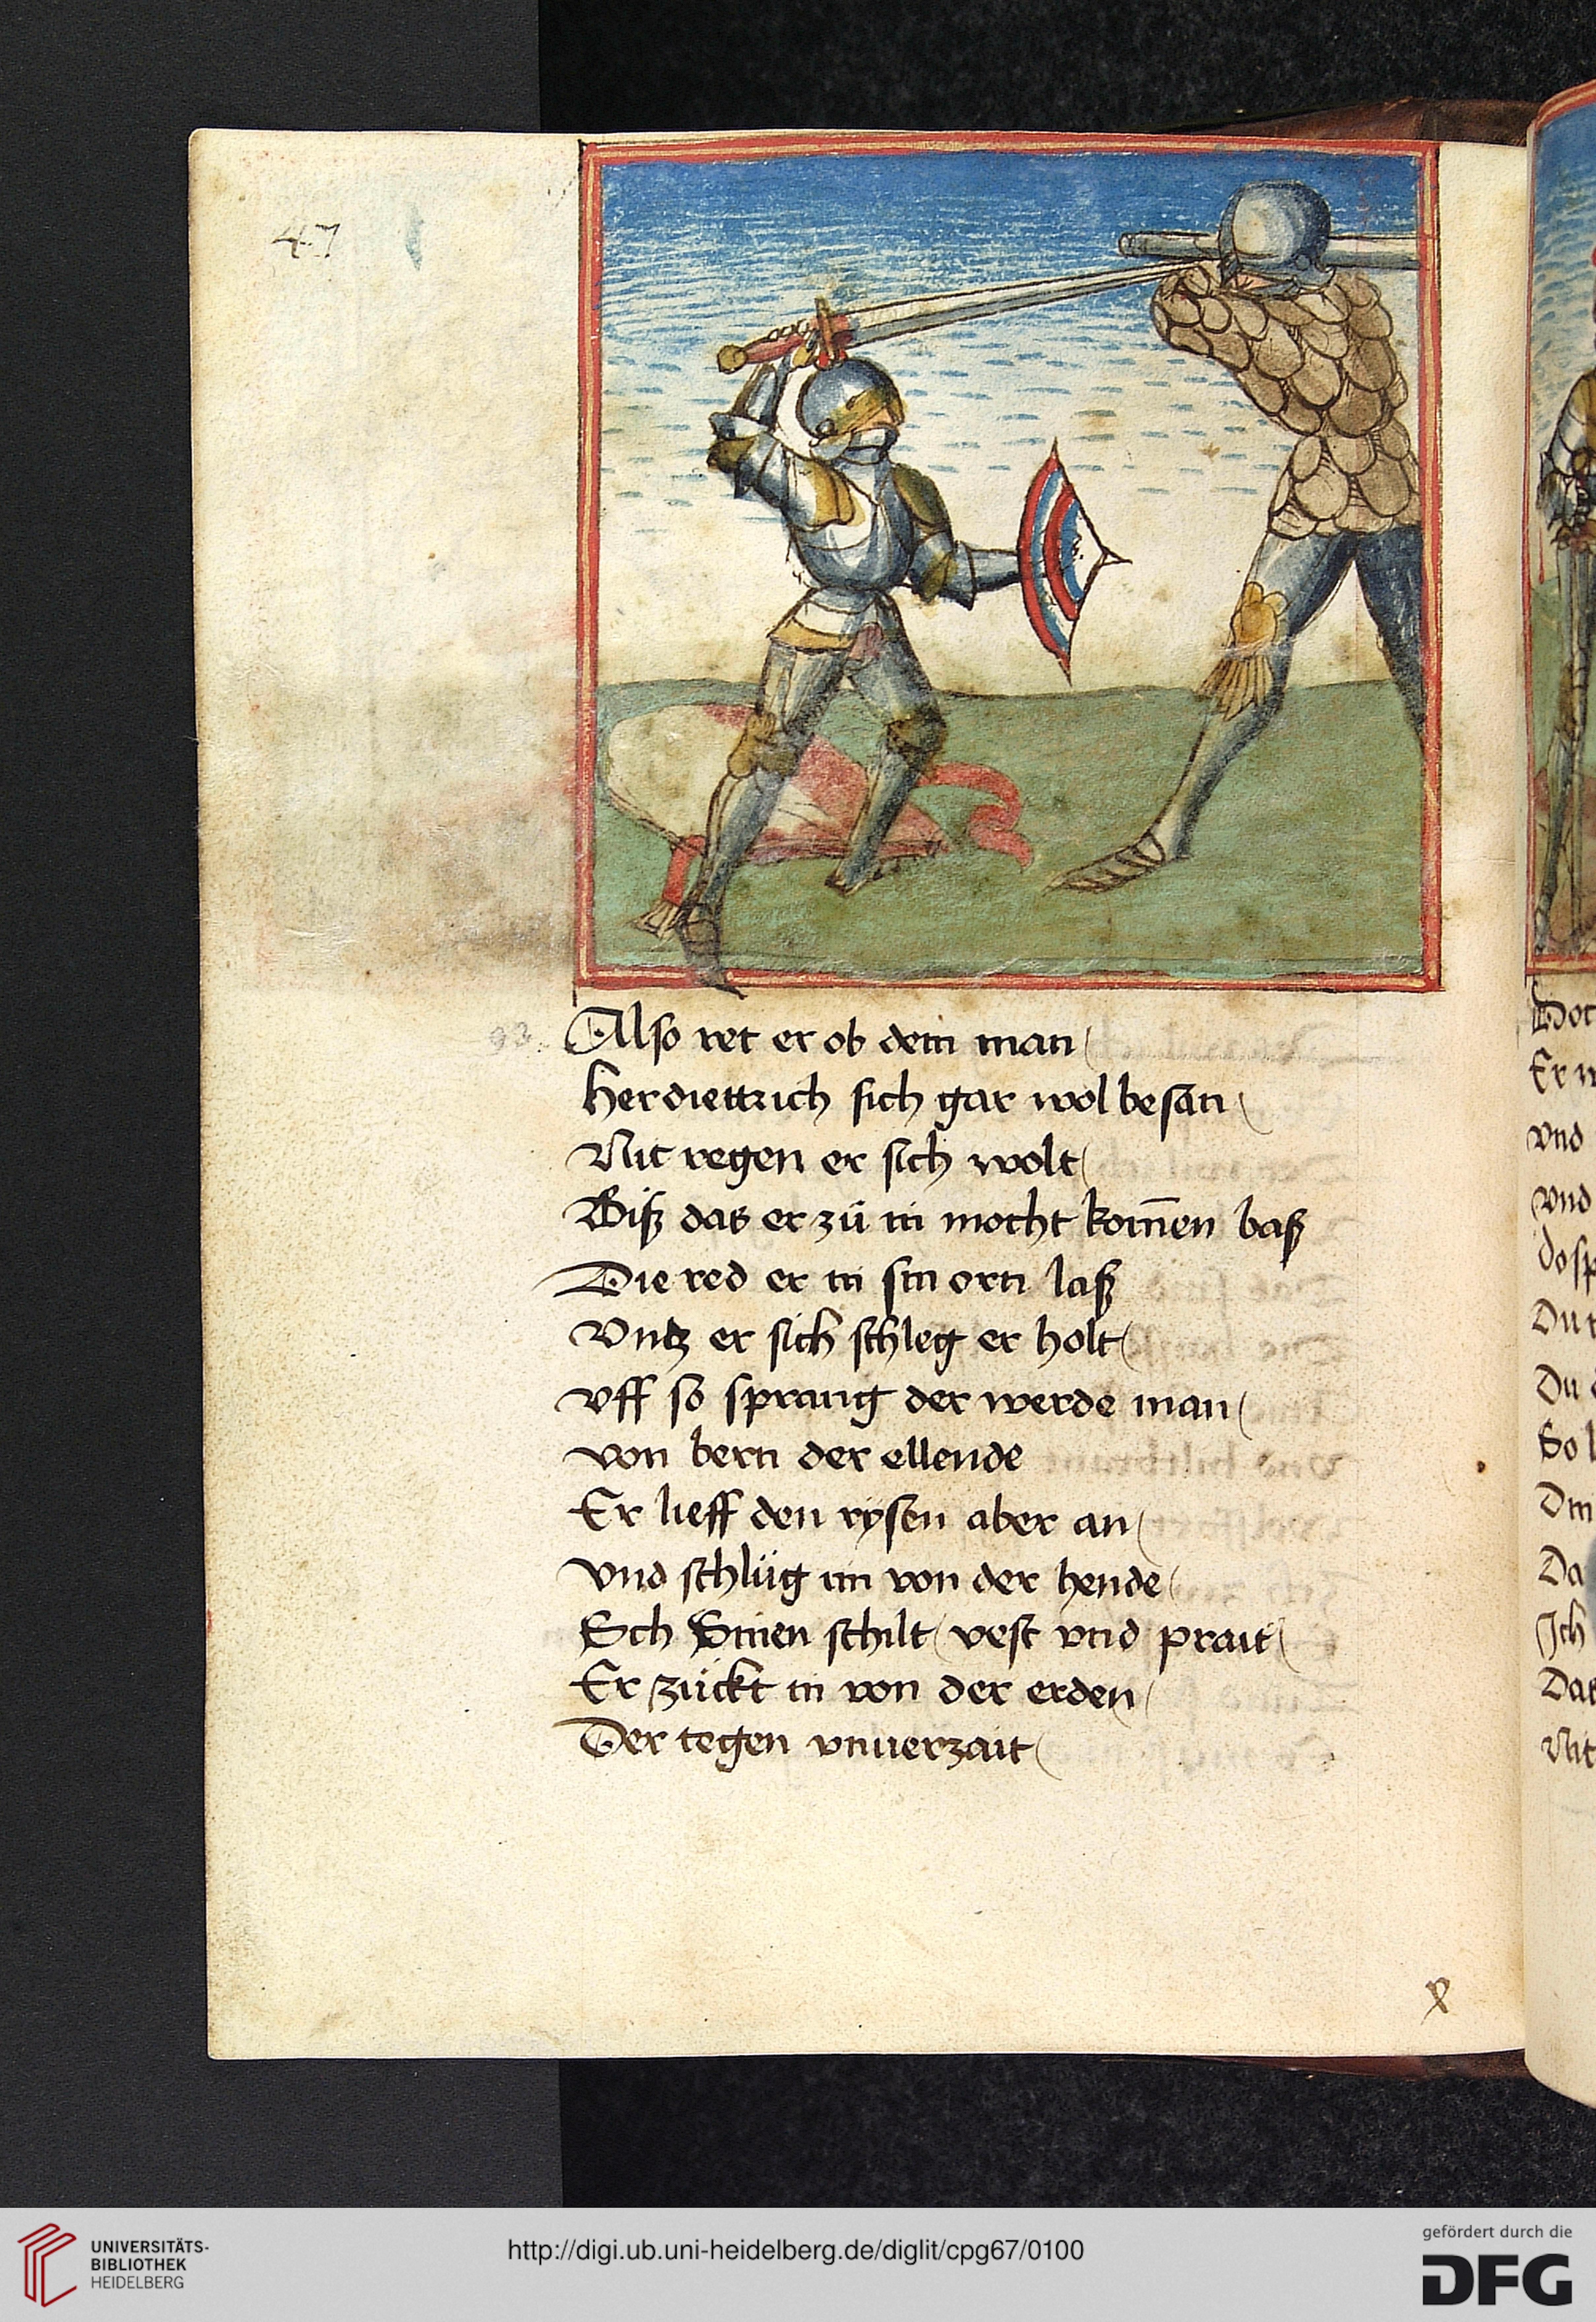 47
93.
Also ret er ob dem man
Herdiettrich sich gar wol besan
Nit regen er sich wolt
Biß das er zü in mocht kom̄en baß
Die red er in sin orn laß
Vntz er sich schleg er holt
vff so sprang der werde man
von bern der ellende
Er lieff den rysen aber an
vnd schlüg im von der hende
Sch Sinen schilt vest vnd prait
Er zückt in von der erden
Der tegen vnuerzait
Er
vnd
vnd
Du
So
Da
Ich
Das
Nit
UNIVERSITÄTS-
BIBLIOTHEK
HEIDELBERG
http://digi.ub.uni-heidelberg.de/diglit/cpg67/0100
gefördert durch die
DFG